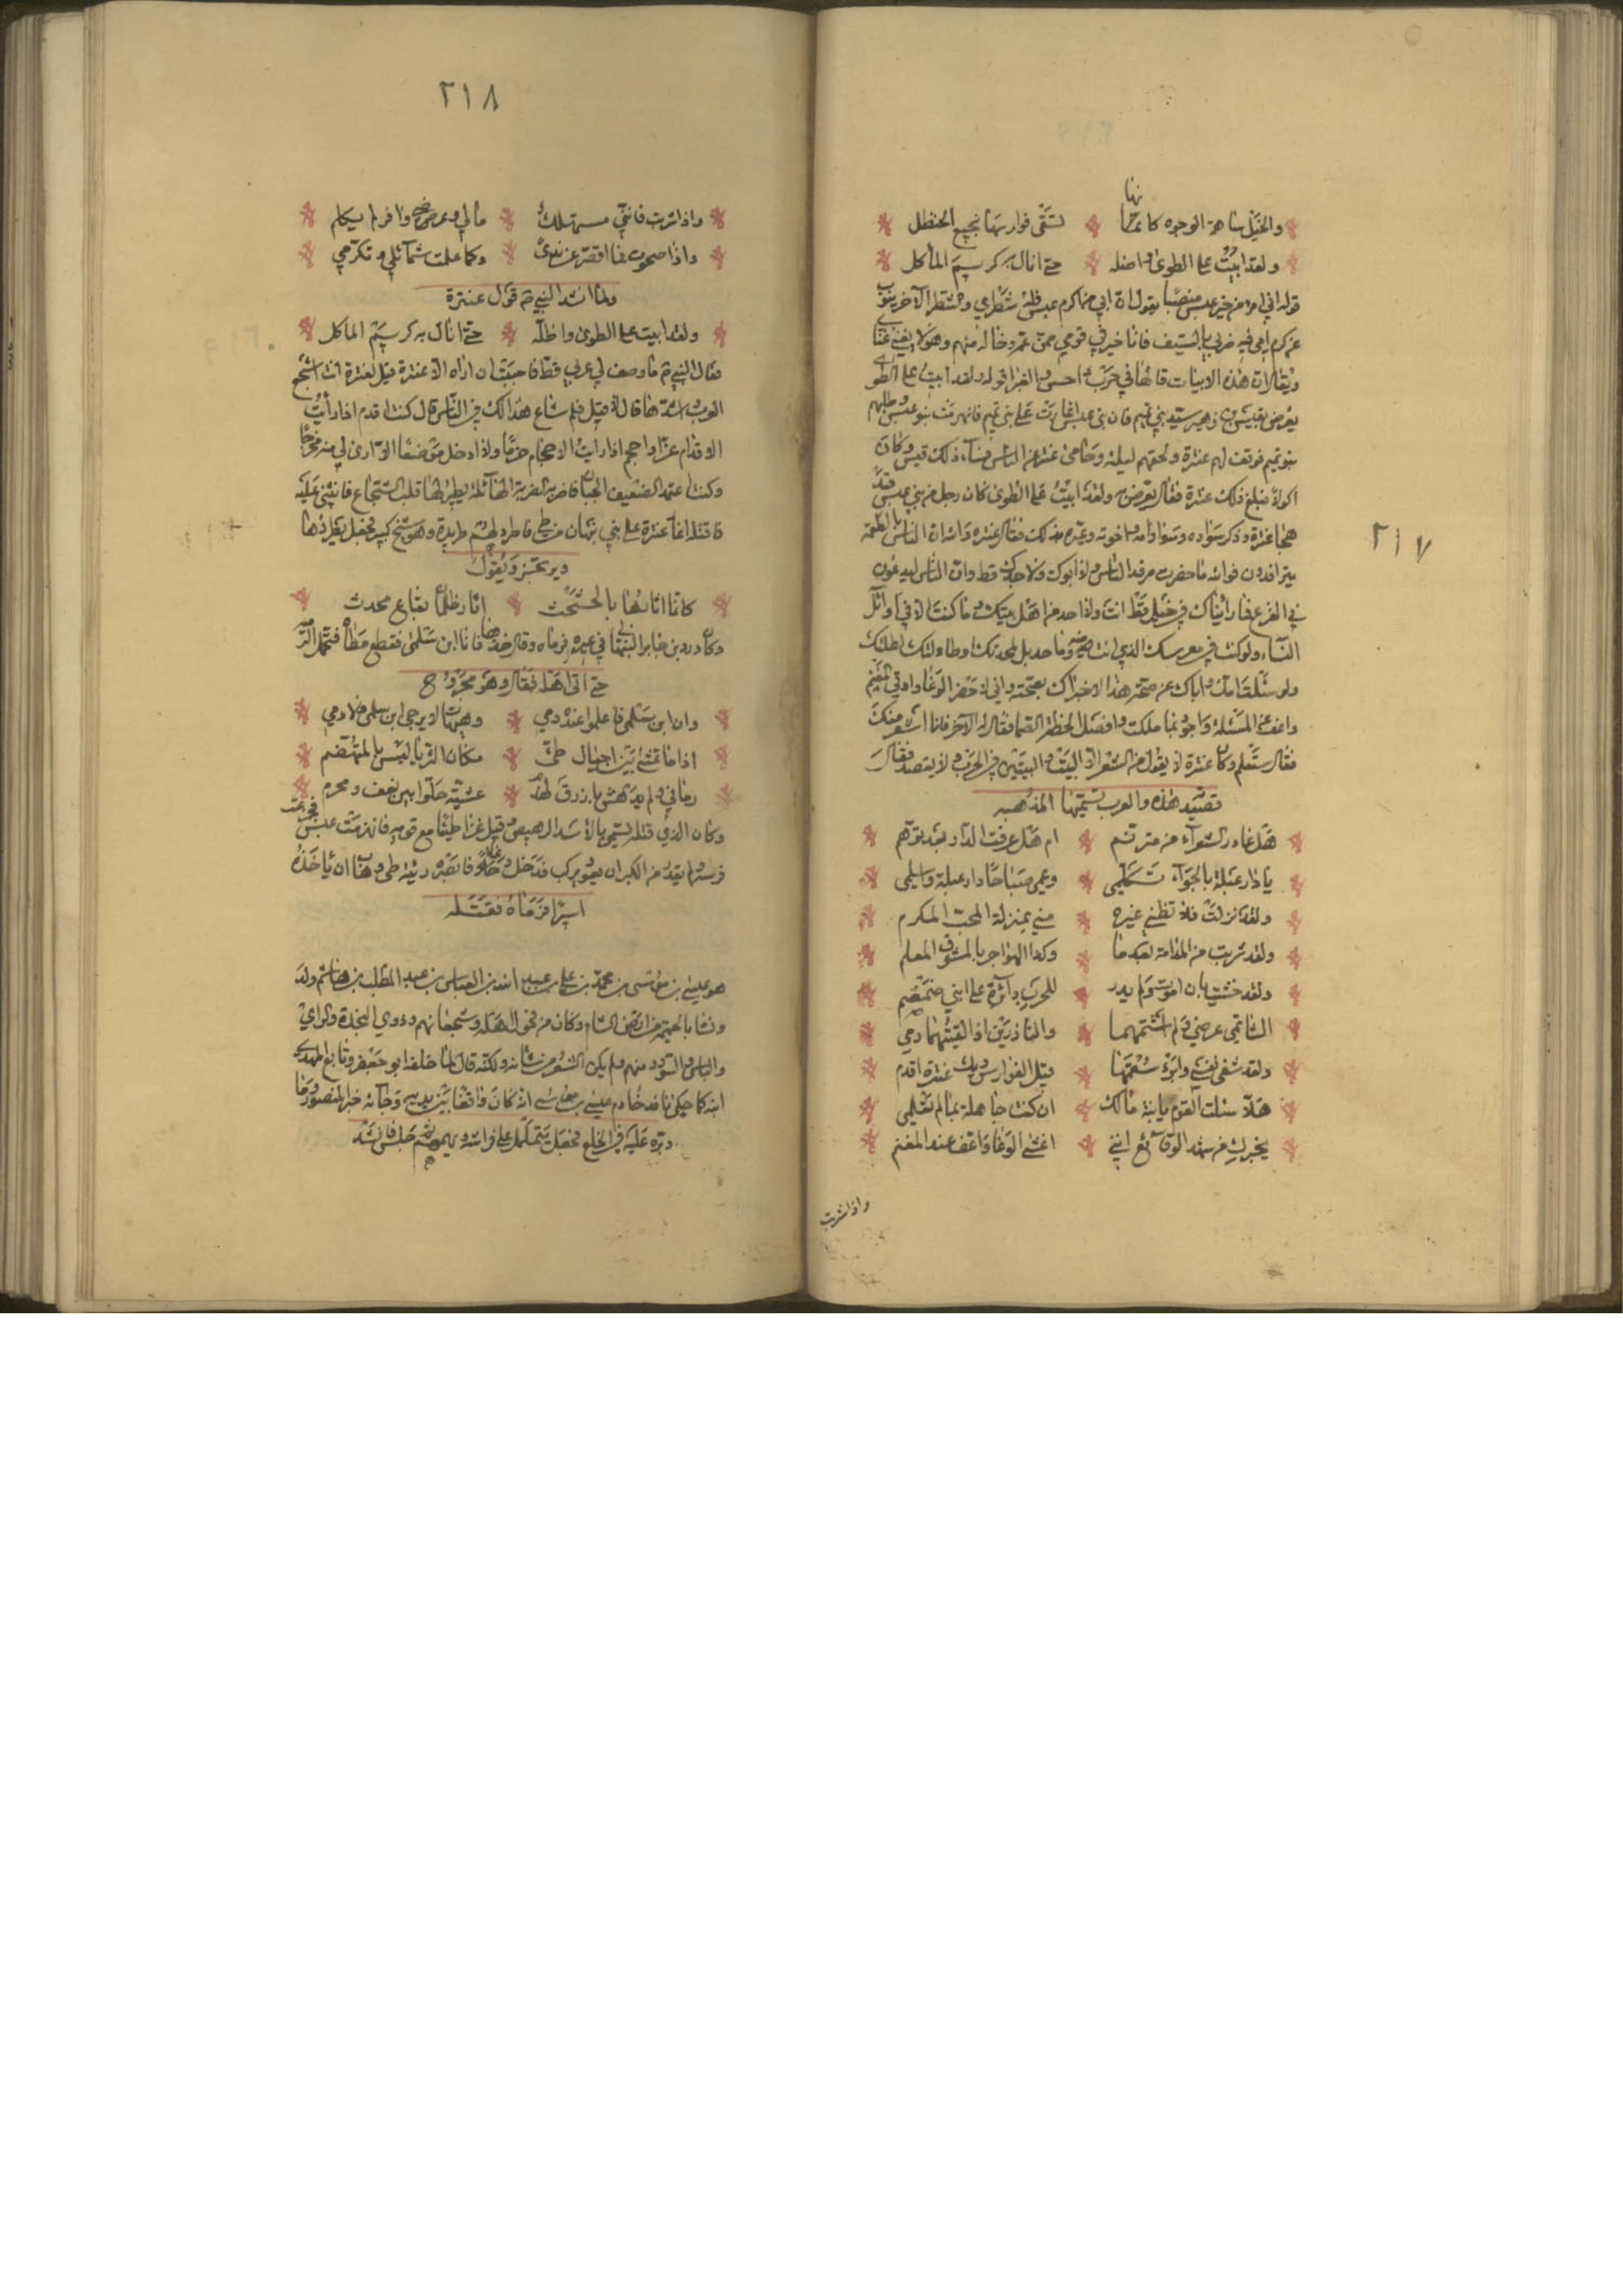 ٢١٧
والخيل ساهمة الوجوه كانما تسقى فوارسها نجيع الحنظل
نها
ولقد ابيت على الطوى واضله حتى انال به كريم المأكل
قوله اني امرؤ من خير عبس منصبا يقول ان ابي من اكرم عبس شطري والشطر الآخر ينوب
عن كرم امي فيه ضربي بالسيف فانا خير في قومي ممن عمه وخاله منهم وهو لا يغني غنائي
ويقال ان هذه الابيات قالها في حرب داحس والغبرا قوله ولقد ابيت على الطوى
يعرض بقيس بن زهير سيد بني تميم فان بني عبس اغارت على بني تميم فانهزمت بنو عبس وطلبهم
بنو تميم فوقف لهم عنترة ولحقتهم ليلة وحامى عنترة عن الناس فساء ذلك قيس وكان
اكولا فبلغ ذلك عنترة فقال يعرض به ولقد ابيت على الطوى كان رجل من بني عبس قد
هجا عنترة وذكر سواده وسواد امه واخوته وعيره بذلك فقال عنترة والله ان الناس بالطعمة
يترافدون فوالله ما حضرت مرفد الناس ولا ابوك ولا جدك قط وان الناس ليدعون
في الفزع فما رأيناك في خيل قط انت ولا احد من اهل بيتك وما كنت الا في اوائل
النساء ولو كنت في معرسك الذي انت فيه وما حد بل لمجدتك او طاولتك لطلتك
ولو سئلت امك واباك عن صحة هذا الاخبراك بصحته واني لاحضر الوغا واوفي المغنم
واعف عن المسئلة واجود بما ملكت وافصل الخطة الصما فقال له الآخر فانا اشعر منك
فقال ستعلم وكان عنترة لا يقول من الشعر الا البيت والبيتين في الحرب ولا يقصد فقال
قصيد هذه والعرب تسميها المذهبه
هل غادر الشعراء من متردم ام هل عرفت الدار بعد توهم
يا دار عبلة بالجواء تكلمي وعمي صباحا دار عبلة واسلمي
ولقد نزلت فلا تظني غيره مني بمنزلة المحب المكرم
ولقد شربت من المدامة بعدما ركد الهواجر بالمشوف المعلم
ولقد خشيت بان اموت ولم يدر للحرب دائرة على ابني ضمضم
الشاتمي عرضي ولم اشتمهما والناذرين اذا لقيتهما دمي
ولقد شفى نفسي وابرء سقمها قيل الفوارس ويك عنترة اقدم
هلا سئلت القوم يا ابنة مالك ان كنت جاهلة بما لم تعلمي
يخبرك من شهد الوقائع انني اغشى الوغا واعف عند المغنم
واذا شربت
٢١٨
واذا شربت فانني مستهلك مالي وعرضي وافر لم يكلم
واذا صحوت فما اقصر عن ندى وكما علمت شمائلي وتكرمي
ولما انشد النبي ص قول عنترة
ولقد ابيت على الطوى واظله حتى انال به كريم الماكل
فقال النبي ص ما وصف لي عربي قط فاحببت ان اراه الا عنترة قيل لعنترة انت اشجع
العرب واشدها قال لا قيل فلم شاع هذا لك في الناس قال كنت اقدم اذا رأيت
الاقدام عزما واحجم اذا رايت الاحجام حزما ولا ادخل موضعا لا ارى لي منه مخرجا
وكنت اعتمد الضعيف الجبان فاضربه الضربة الهائلة يطير لها قلب الشجاع فانثني عليه
فاقتله اغار عنترة على بني نبهان من طي فاطرد لهم طريدة وهو شيخ كبير فجعل يطردها
ويرتجز ويقول
كانما اثارها بالحثحث اثار ظلمان بقاع محدث
وكان وزر بن جابر النبهاني في غيره فرماه وقال خذها فانا ابن سلمى فقطع مطاه فتحمل
حتى اتى اهله فقال وهو مجروح
وان ابن سلمى فاعلموا عنده دمي وهيهات لا يرجى ابن سلمى ولا دمي
اذا ما تمشى بين اجبال طي مكان الثريا ليس بالمتهضم
رماني ولم يدهش بازرق لهذم عشية حلوا بين نعف ومخرم
وكان الذي قتله يسمى بالاسد الرهيص وقيل غزا طيئا مع قومه فانهزمت عبس فخر عن
فرسه ولم يقدر من الكبر ان يعود يركب فدخل دغلا فابصره ربيئة طي وهاب ان ياخذه
اسيرا فرماه فقتله
هو عيسى بن موسى بن محمد بن علي بن عبد الله بن العباس بن عبد المطلب بن هاشم ولد
ونشا بالحميمة من ارض الشام وكان من فحول اهله وشجعانهم وذوي النجدة والراي
والباس والسؤدد منهم ولم يكن الشعر من شانه ولكنه قال لما خلفه ابو جعفر وتابع المهدي
ابنه كما حكى نافد خادم عيسى بن موسى انه كان واقفا بين يديه وجائه خبر المنصور وما
دبره عليه في الخلع فجعل يتململ على فراشه ويهمهم ثم جلس فانشد